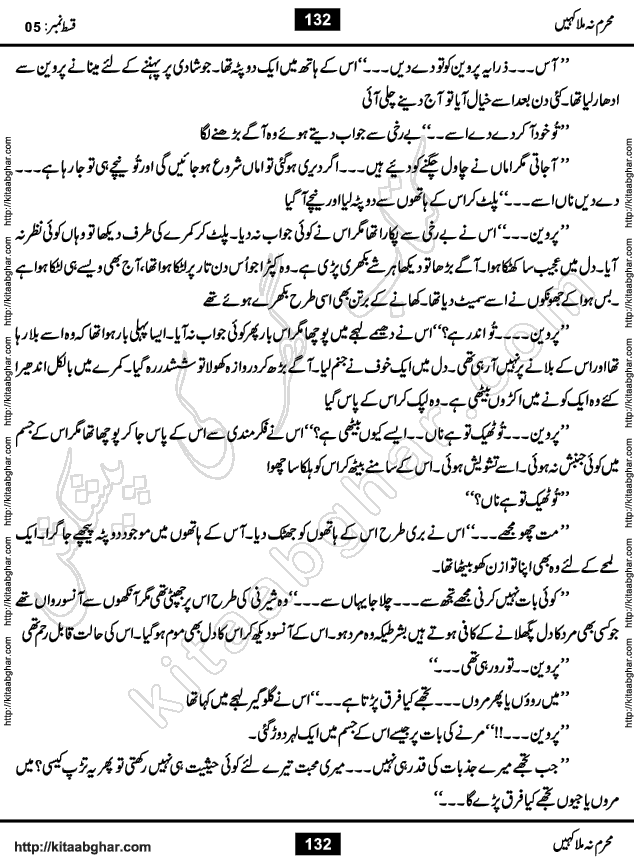 محرم نہ ملا کہیں
132
قسط نمبر: 05
’’ آس۔۔۔ ذرا یہ پروین کو تو دے دیں۔۔۔‘‘ اس کے ہاتھ میں ایک دوپٹہ تھا۔ جو شادی پر پہننے کے لئے مینا نے پروین سے
ادھار لیا تھا۔ کئی دن بعد اسے خیال آیا تو آج دینے چلی آئی
’’ تُو خود آ کر دے دے اسے۔۔‘‘ بے رخی سے جواب دیتے ہوئے وہ آگے بڑھنے لگا
’’ آ جاتی مگر اماں نے چاول چگنے کو دیئے ہیں۔۔۔ اگر دیری ہو گئی تو اماں شروع ہو جائیں گی اور تُو نیچے ہی تو جا رہا ہے۔۔۔
دے دیں ناں اسے۔۔۔‘‘ پلٹ کر اس کے ہاتھوں سے دوپٹہ لیا اور نیچے آ گیا
’’ پروین۔۔۔‘‘ اس نے بے رخی سے پکارا تھا مگر اس نے کوئی جواب نہ دیا۔ پلٹ کر کمرے کی طرف دیکھا تو وہاں کوئی نظر نہ
آیا۔ دل میں عجیب سا کھٹکا ہوا۔ آگے بڑھا تو دیکھا ہر شے بکھری پڑی ہے۔ وہ کپڑا جو اُس دن تار پر لٹکا ہوا تھا، آج بھی ویسے ہی لٹکا ہوا ہے
۔ بس ہوا کے جھونکوں نے اسے سمیٹ دیا تھا۔ کھانے کے برتن بھی اسی طرح بکھرے ہوئے تھے
’’ پروین۔۔۔۔ تُو اندر ہے؟‘‘ اس نے دھیمے لہجے میں پوچھا مگر اس بار پھر کوئی جواب نہ آیا۔ ایسا پہلی بار ہوا تھا کہ وہ اسے بلا رہا
تھا اور اس کے بلانے پر نہیں آ رہی تھی۔ دل میں ایک خوف نے جنم لیا۔ آگے بڑھ کر دروازہ کھولا تو ششدر رہ گیا۔ کمرے میں بالکل اندھیرا
کئے وہ ایک کونے میں اکڑوں بیٹھی ہے۔ وہ لپک کر اس کے پاس گیا
’’ پروین۔۔۔ تُو ٹھیک تو ہے ناں۔۔ ایسے کیوں بیٹھی ہے؟‘‘ اس نے فکر مندی سے اس کے پاس جا کر پوچھا تھا مگر اس کے جسم
میں کوئی جنبش نہ ہوئی۔ اسے تشویش ہوئی۔ اس کے سامنے بیٹھ کر اس کو ہلکا سا چھوا
’’ تُو ٹھیک تو ہے ناں؟‘‘
’’ مت چھو مجھے۔۔۔‘‘ اس نے بری طرح اس کے ہاتھوں کو جھٹک دیا۔ آس کے ہاتھوں میں موجود دوپٹہ پیچھے جا گرا۔ ایک
لمحے کے لئے وہ بھی اپنا توازن کھو بیٹھا تھا۔
’’ کوئی بات نہیں کرنی مجھے تجھ سے۔۔۔ چلا جا یہاں سے۔۔۔‘‘ وہ شیرنی کی طرح اس پر جھپٹی تھی مگر آنکھوں سے آنسو رواں تھے
جو کسی بھی مرد کا دل پگھلانے کے کافی ہوتے ہیں بشرطیکہ وہ مرد ہو۔ اس کے آنسو دیکھ کر اس کا دل بھی موم ہو گیا۔ اس کی حالت قابل رحم تھی
’’ پروین۔۔ تو رو رہی تھی۔۔۔‘‘
’’ میں روؤں یا پھر مروں۔۔۔ تجھے کیا فرق پڑتا ہے۔۔۔‘‘ اس نے گلوگیر لہجے میں کہا تھا
’’ پروین۔۔۔!!‘‘ مرنے کی بات پر جیسے اس کے جسم میں ایک لہر دوڑ گئی۔
’’ جب تجھے میرے جذبات کی قدر ہی نہیں۔۔۔ میری محبت تیرے لئے کوئی حیثیت ہی نہیں رکھتی تو پھر یہ تڑپ کیسی؟ میں
مروں یا جیوں تجھے کیا فرق پڑے گا۔۔۔‘‘
http://kitaabghar.com http://kitaabghar.com http://kitaabghar.com http://kitaabghar.com http://kitaabghar.com http://kitaabghar.com
http://kitaabghar.com http://kitaabghar.com http://kitaabghar.com http://kitaabghar.com http://kitaabghar.com http://kitaabghar.com
کتاب گھر کی پیشکش
kitaabghar.com
محرم نہ ملا کہیں
132
http://kitaabghar.com